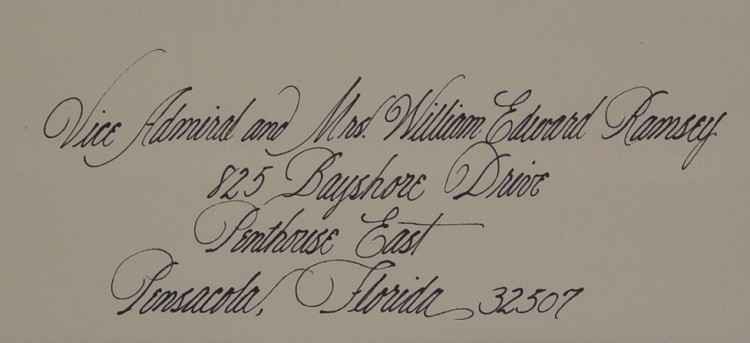 Vice Admiral and Mrs. William Edward Ramsey
825 Bayshore Drive
Penthouse East
Pensacola, Florida 32507